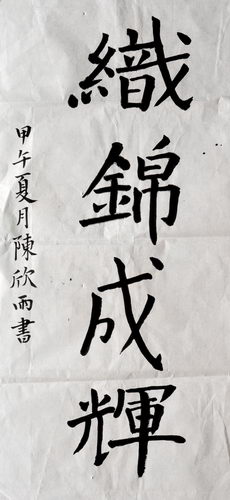 織錦成輝
甲午夏月陳欣雨書